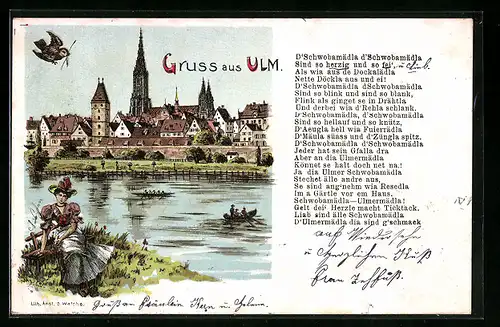 Gruss aus ULM.
D'Schwobamädla d'Schwobamädla
Sind so herzig und so fei', u. lieb.
Als wia aus de Dockalädla
Nette Döckla aus und ei!
D'Schwobamädla dSchwobamädla
Sind so blink und sind so blank,
Flink als ginget se in Drähtla
Und derbei wia d'Rehla schlank.
D'Schwobamädla, d'Schwobamädla
Sind so heilauf und so knütz,
D'Aeugla hell wia Fuierrädla
D'Mäula süass und d'Züngla spitz.
D'Schwobamädla d'Schwobamädla
Jeder hat sein Gfalla dra
Aber an dia Ulmermädla
Könnet se halt doch net na!
Ja dia Ulmer Schwobamädla
Stechet älle andre aus,
Se sind ang'nehm wia Resedla
Im a Gärtle vor em Haus.
Schwobamädla—Ulmermädla!
Gelt dei' Herzle macht Ticktack.
Liab sind älle Schwobamädla
D'Ulmermädla dia sind g'schmack
auf Wiedersehn
u. herzlichen Kuß
Frau
Lith. Anst.
Grüße an Fräulein u.